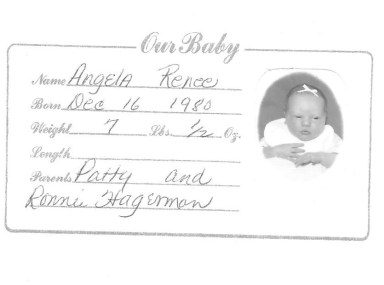 Our Baby
Name Angela Renee
Born Dec 16 1980
Weight 7 Lbs. 1/2 Oz.
Length
Parents Patty and
Ronnie Hagerman